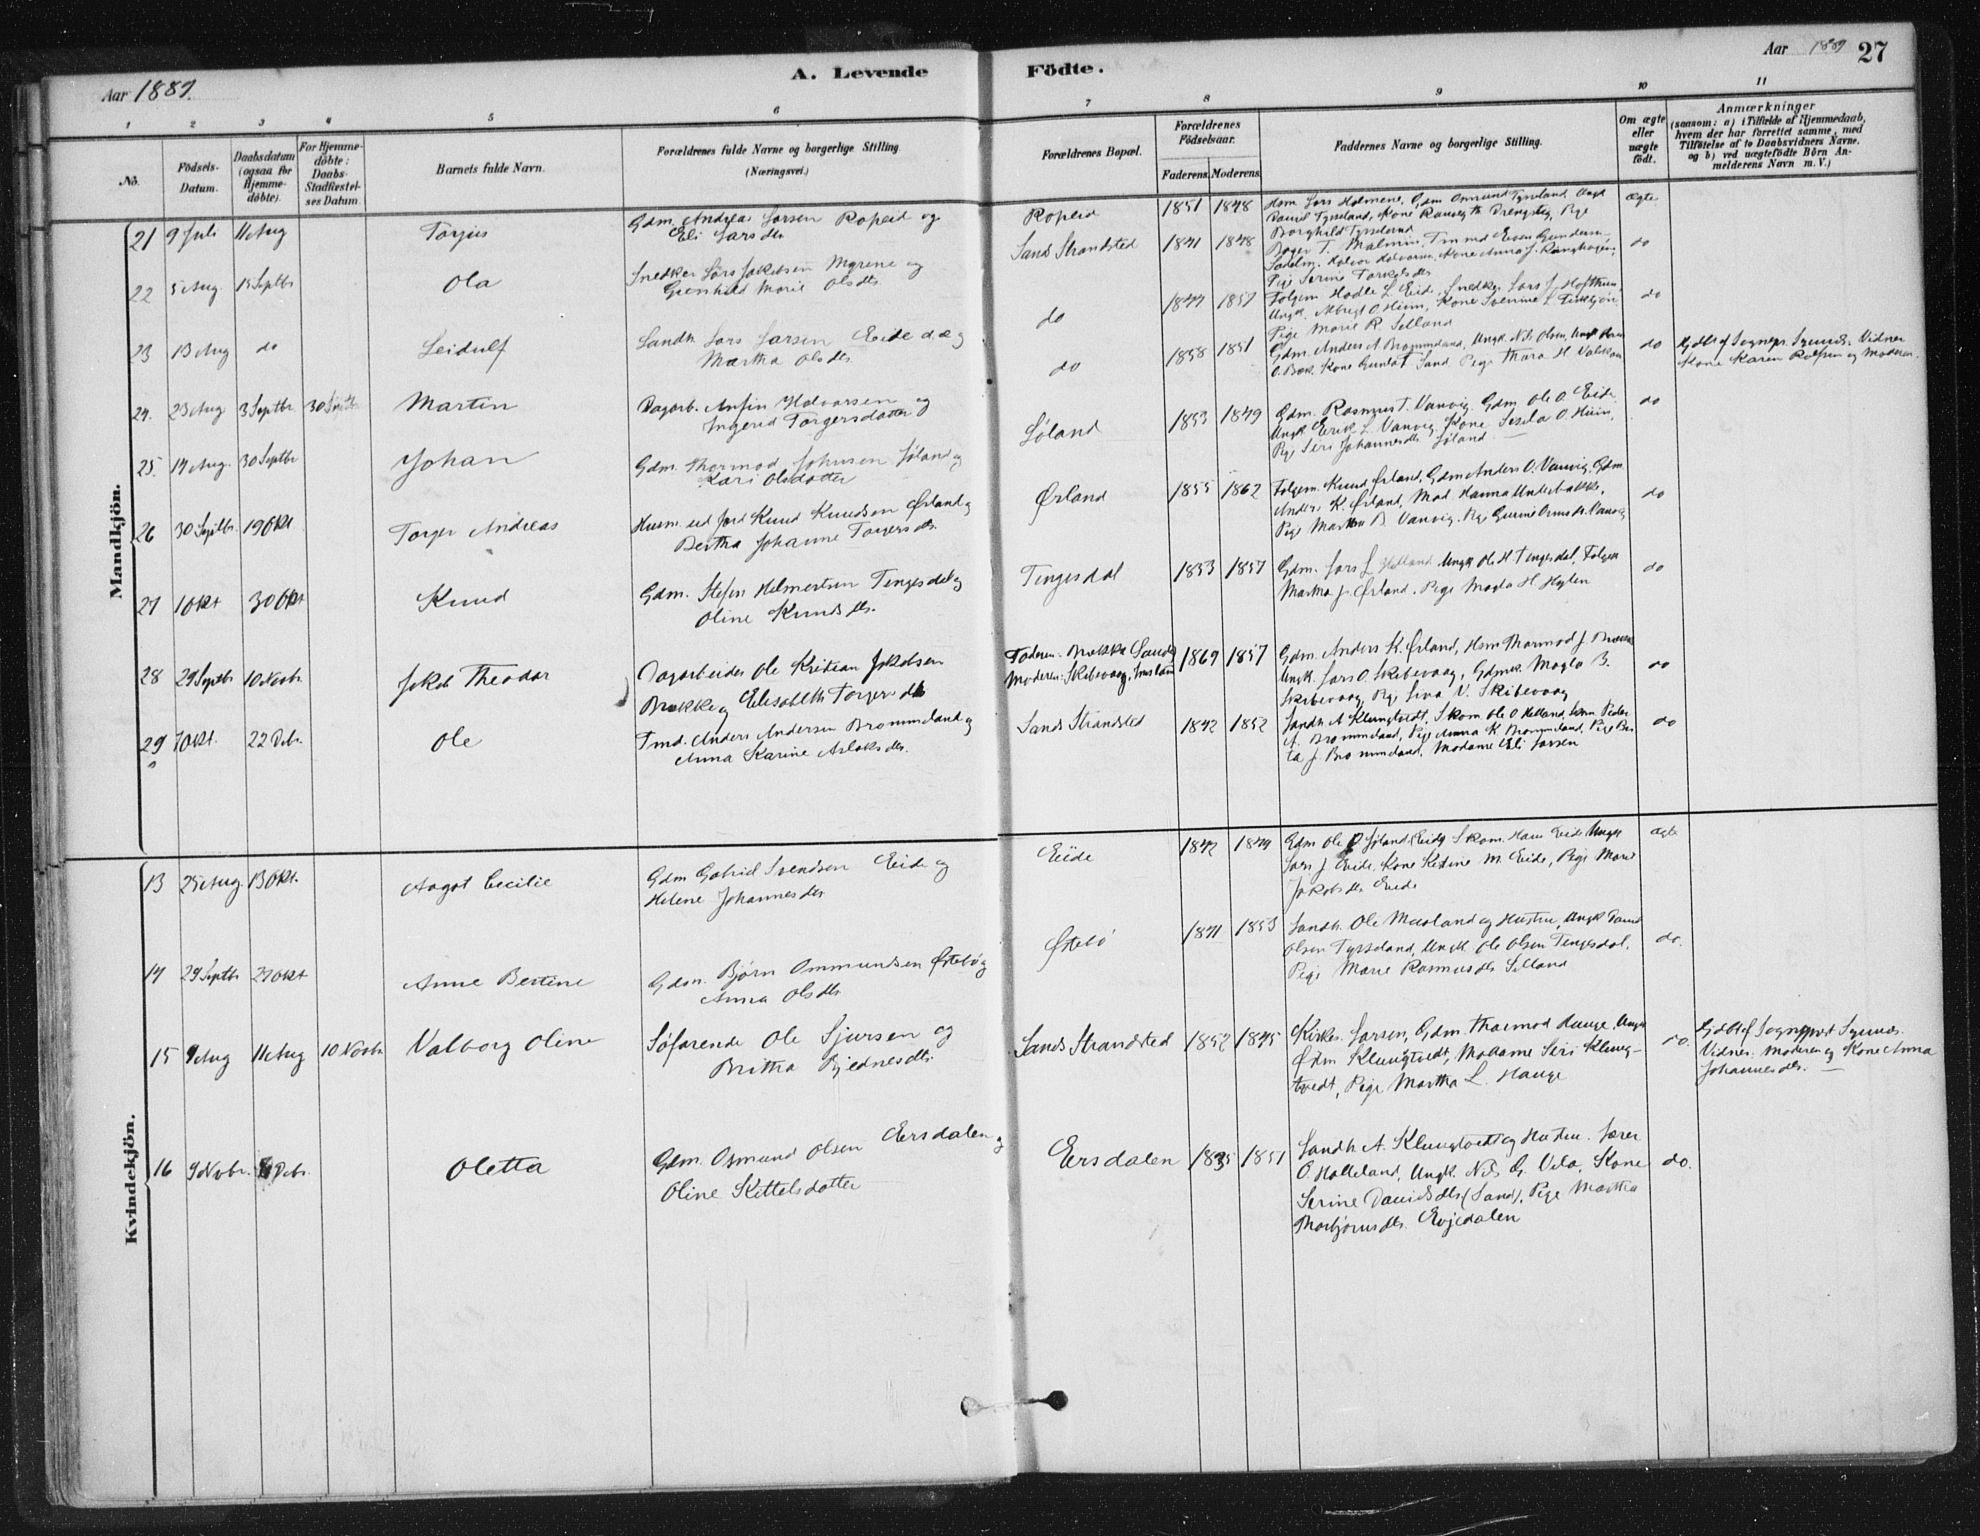 Aar 1889.
A. Levende Födte.
Aar 1889 27
1 2 3 4 5 6 7 8 9 10 11
No.
Födsels-Datum.
Daabsdatum (ogsaa for Hjemme-döbte).
For Hjemme-döbte: Daabs-Stadfæstel-ses Datum.
Barnets fulde Navn.
Forældrenes fulde Navne og borgerlige Stilling. (Næringsvei.)
Forældrenes Bopæl.
Forældrenes Födselsaar.
Faderens. Moderens.
Faddernes Navne og borgerlige Stilling.
Om ægte eller uægte födt.
Anmærkninger
(saasom: a) i Tilfælde af Hjemmedaab,
hvem der har forrettet samme, med
Tilföielse af to Daabsvidners Navne,
og b) ved uægtefödte Börn An-
melderens Navn m. V.)
Mandkjön.
21 9 Juli 11 Aug Torjus
Gdm. Andreas Larsen Ropeid og
Eli Larsdtr
Ropeid 1851 1848
Hsm. Lars Holmene, Gdm Omund Tysseland, Ungk
Tysseland, Kone Drengstig, Pige
Borghild Tysseland
ægte
22 5 Aug. 15 Septbr Ola
Snedker Lars Jakobsen Myrene og
Gunhild Marie Olsdtr
Sands Strandsted 1841 1848
T. Malmin, Even
Halvor Halvorsen, Kone Anna J.
Pige Serine Torkelsdtr
do
23 13 Aug do Leidulf
Sandh. Lars Larsen Eide d.æ og
Martha Olsdtr
do 1844 1857
Folgem. Hadle L Eide, Snedker Lars J.
Ungk. Albregt O Hiim, Kone Severine L.
Pige Marie R. Selland
do
24. 23 Aug 3 Septbr. 30 Septbr. Martin
Dagarb. Anfin Halvorsen og
Ingerid Torgersdatter
do 1858 1851
Gdm. Anders A Brommeland, Ungk. Nils Olsen, Ungk
Kone Sand Pige Thora H
do
Hjdbt af Sognepr. Vidner
Kone Karen og Moderen.
25. 14 Aug. 30 Septbr Johan
Gdm. Thormod Johnsen Løland og
Kari Olsdatter
Løland 1853 1849
Gdm. Rasmus T. Vanvig. Gdm Ole O. Eide,
Ungk Erik L. Vanvig. Kone Sesela O Hiim,
Pige Siri Johannesdtr Løland
do
26 30 Septbr. 19 Okt Torger Andreas
Husm. ud Jord Knud Knudsen Ørland og
Bertha Johanne Torgersdtr.
Ørland 1855 1862
Folgem. Knud Ørland, Gdm Anders O. Vanvig. Gdm.
Anders K. Ørland, Mad. Hanna Underbakke,
Pige Martha B. Vanvig. Pige Gurine Vanvig
do
27 1 Okt 30 Okt Knud
Gdm. Stefen Helmertsen Tengesdal og
Oline Knudsdtr.
Tengesdal 1853 1857
Gdm. Lars L Helland Ungk Ole H Tengesdal, Folgek
Martha J. Ørland. Pige Magla H Hylen
do
28 29 Septbr 10 Novbr. Jakob Theodor
Dagarbeider Ole Kristian Jakobsen
Brekke og Elisabeth Torgersdtr
Faderen: Brekke Sand
Moderen: Skibevaag, Imsland
1869 1857
Gdm. Anders K. Ørland, Hsm Thormod J.
Ungk. Lars O. Skibevaag, Gdmk. Magla B.
Skibevaag Pige Lina V. Skibevaag
do
29 7 Okt. 22 Debr. Ole
Tmd. Anders Andersen Brommeland og
Anna Karine Aslaksdtr.
Sands Strandsted 1842 1852
Sandh. A Klungtvedt, Skom. Ole O Helland, Peder
A. Brommeland, Pige Anna K Brommeland, Pige Ber
ta J. Brommeland, Madame Eli Larsen
do
Kvindekjön.
13 25 Aug. 13 Okt. Aagot Cecilie
Gdm Gabriel Svendsen Eide og
Helene Johannesdtr
Eide 1842 1849
Gdm Ole O Løland (Eide) Skom. Hans Eide Ungk
Lars J Eide. Kone Kistine M. Eide, Pige Marie
Jakobsdtr Eide
ægte
14 29 Septbr 27 Okt Anne Bertine
Gdm. Bjørn Ommundsen Østebø og
Anna Olsdtr
Østebø 1841 1853
Sandh. Ole Maaland og Hustru, Ungk
Olsen Tysseland, Ungk Ole Olsen Tengesdal,
Pige Marie Rasmusdtr Selland
do.
15 9 Aug 11 Aug 10 Novbr Valborg Oline
Søfarende Ole Sjursen og
Britha Bjednesdtr.
Sands Strandsted 1852 1845
Kirkes. Larsen, Gdm. Thormod Hauge, Ungk
Klungtvedt, Madame Siri Klung-
tvedt, Pige Martha L. Hauge
do.
Hjdbt af Sognepræst
Vidner: Moderen og Kone Anna
Johannesdtr.
16 9 Novbr. 8 Debr. Oletta
Gdm. Osmund Olsen Eersdalen og
Oline Kittelsdatter
Eersdalen 1835 1851
Sandh A. Klungtvedt og Hustru. Lærer
O. Halleland, Ungk. Nils G. Vela, Kone
Serine Davidsdtr (Sand), Pige Martha
Thorbjørnsdtr. Evjedalen
do.